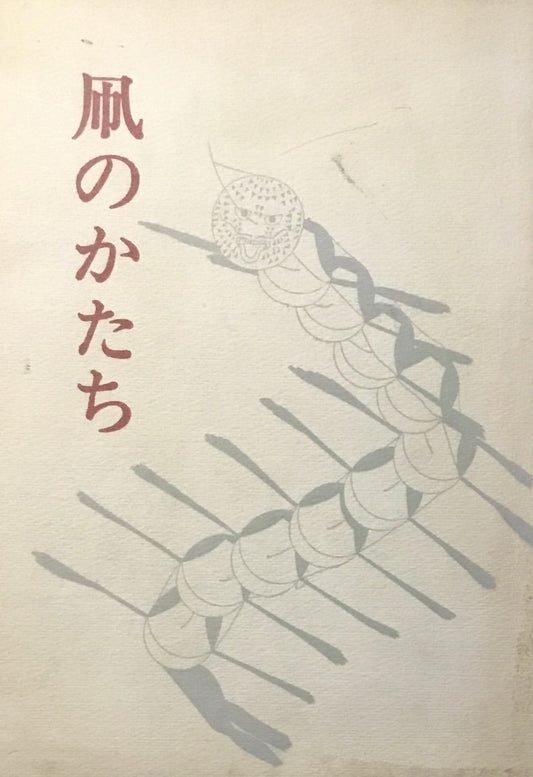 凧のかたち